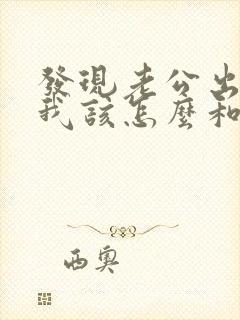 發現老公出
我該怎麼和
西奧